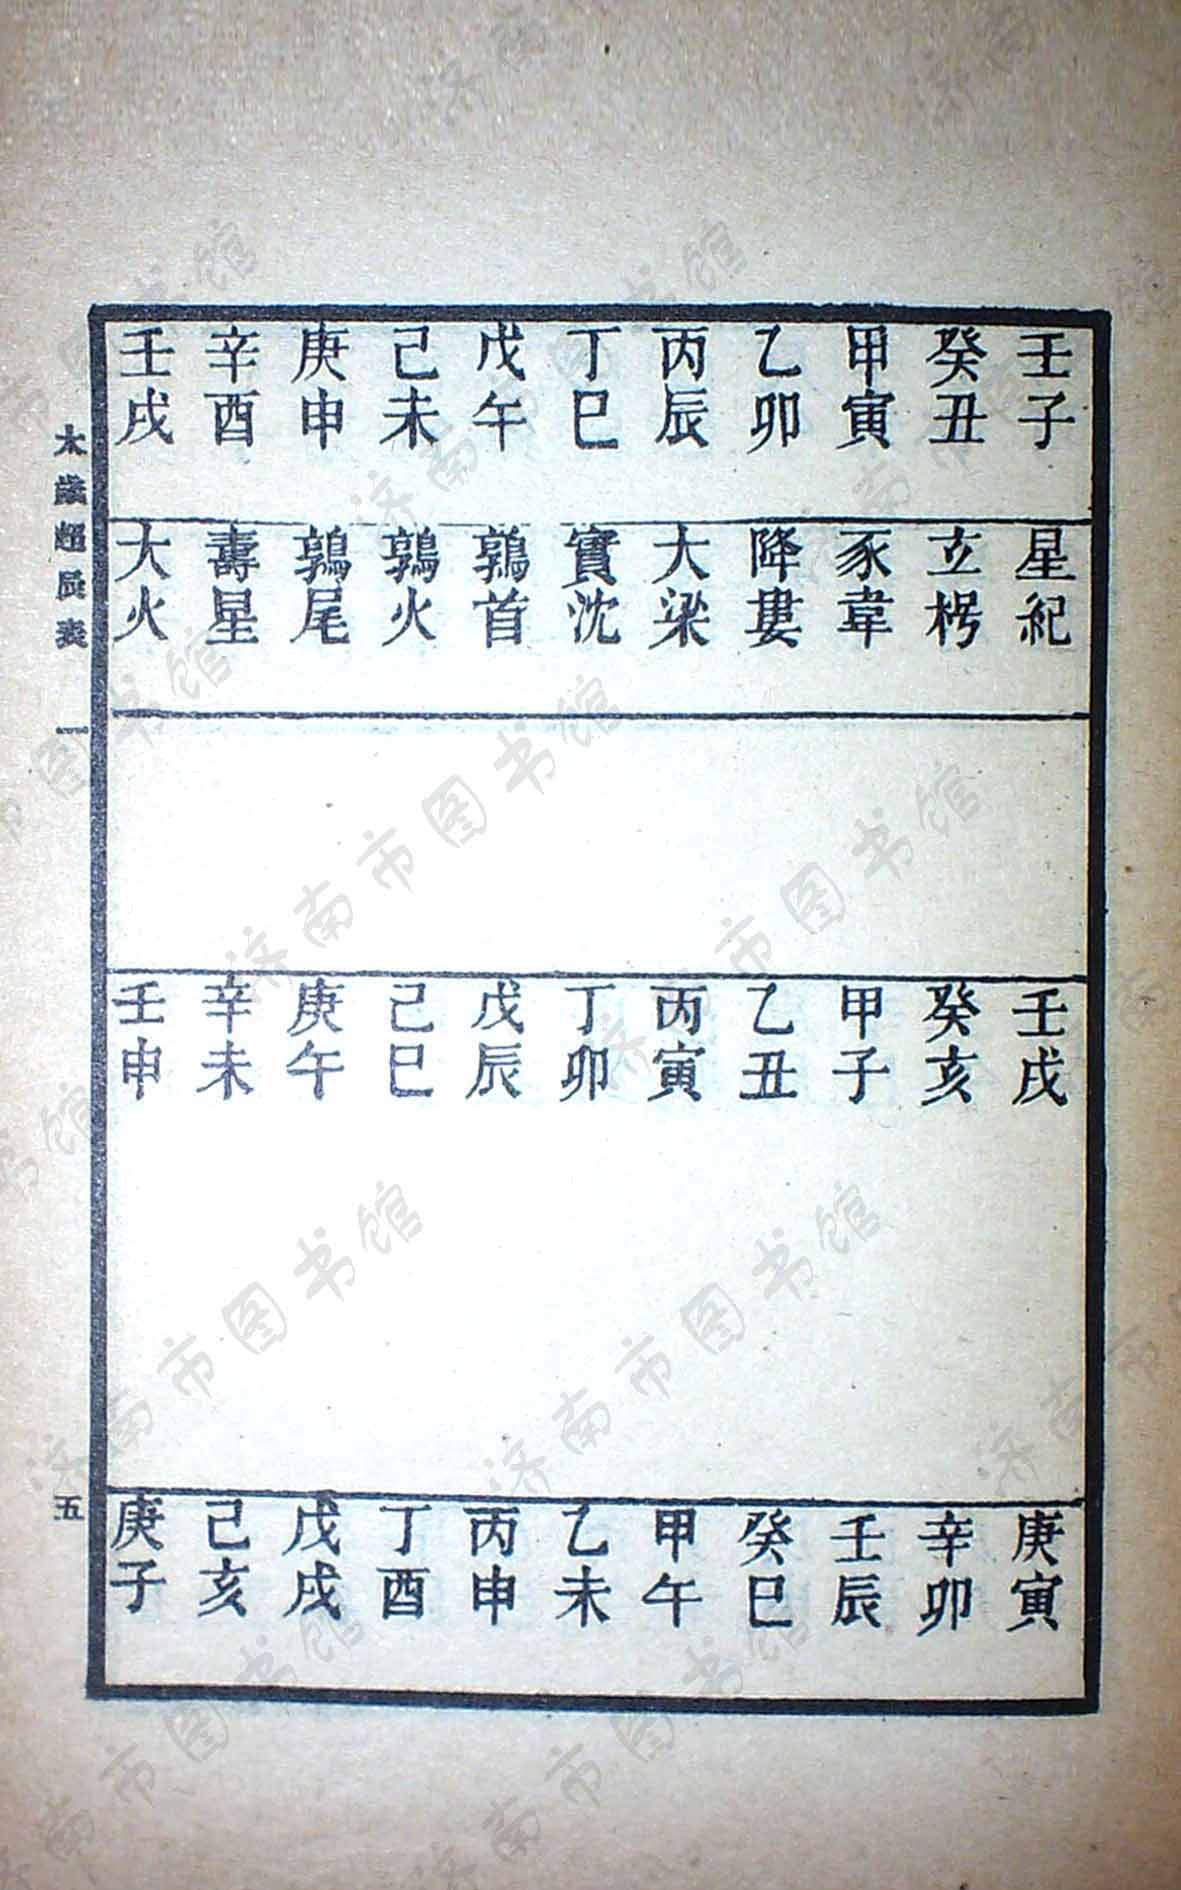 壬子 星紀 壬戌 庚寅
癸丑 玄枵 癸亥 辛卯
甲寅 豕韋 甲子 壬辰
乙卯 降婁 乙丑 癸巳
丙辰 大梁 丙寅 甲午
丁巳 實沈 丁卯 乙未
戊午 鶉首 戊辰 丙申
己未 鶉火 己巳 丁酉
庚申 鶉尾 庚午 戊戌
辛酉 壽星 辛未 己亥
壬戌 大火 壬申 庚子
太歲超辰表 一 五
济南市图书馆